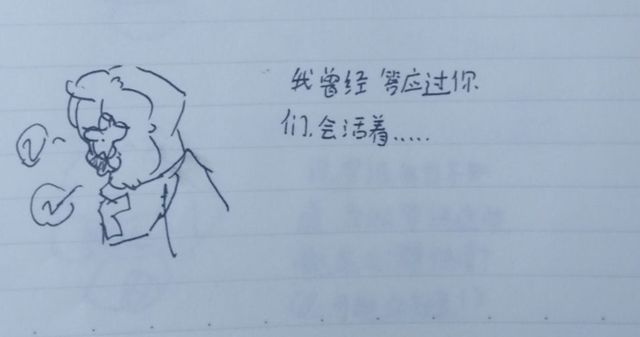 我曾经答应过你
们.会活着.....